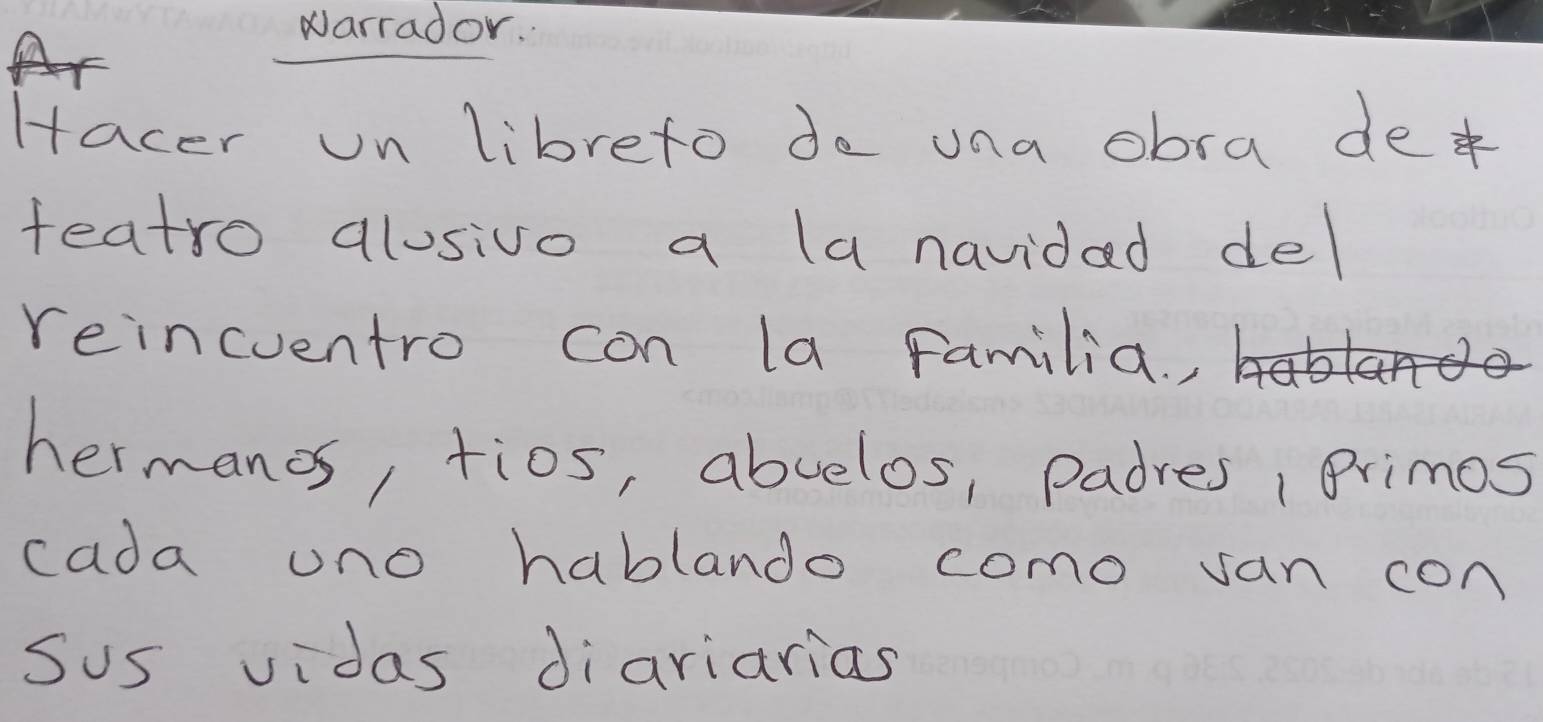 Narrador.
Hacer un libreto de una obra de
teatro alusivo a la navidad del
reincuentro con la Familia., hablando
hermanos, tios, abuelos, padres, primos
cada uno hablando como van con
sus vidas diariarias